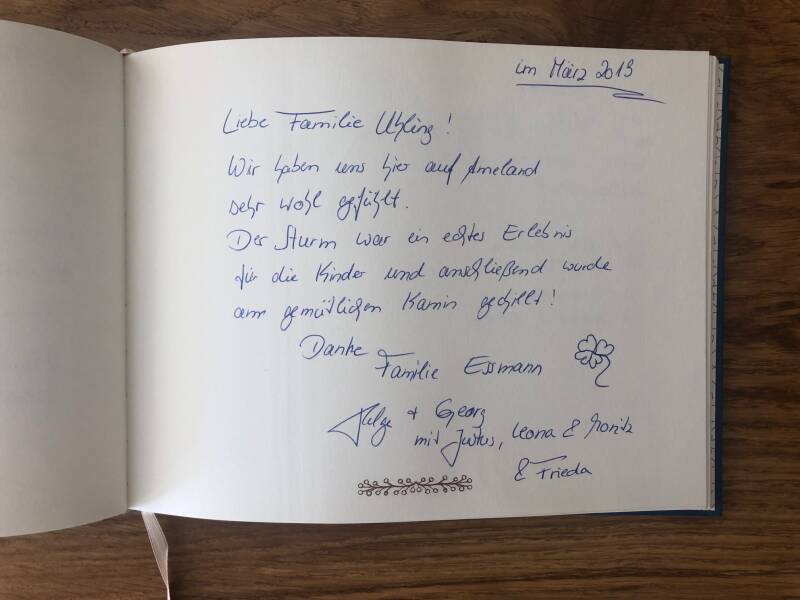 im März 2019
Liebe Familie Uhling!
Wir haben uns hier auf Ameland
sehr wohl gefühlt.
Der Sturm war ein echtes Erlebnis
für die Kinder und anschließend wurde
am gemütlichen Kamin gechillt!
Danke
Familie Essmann
+ Georg
mit Justus, Leona & Moritz
& Frieda